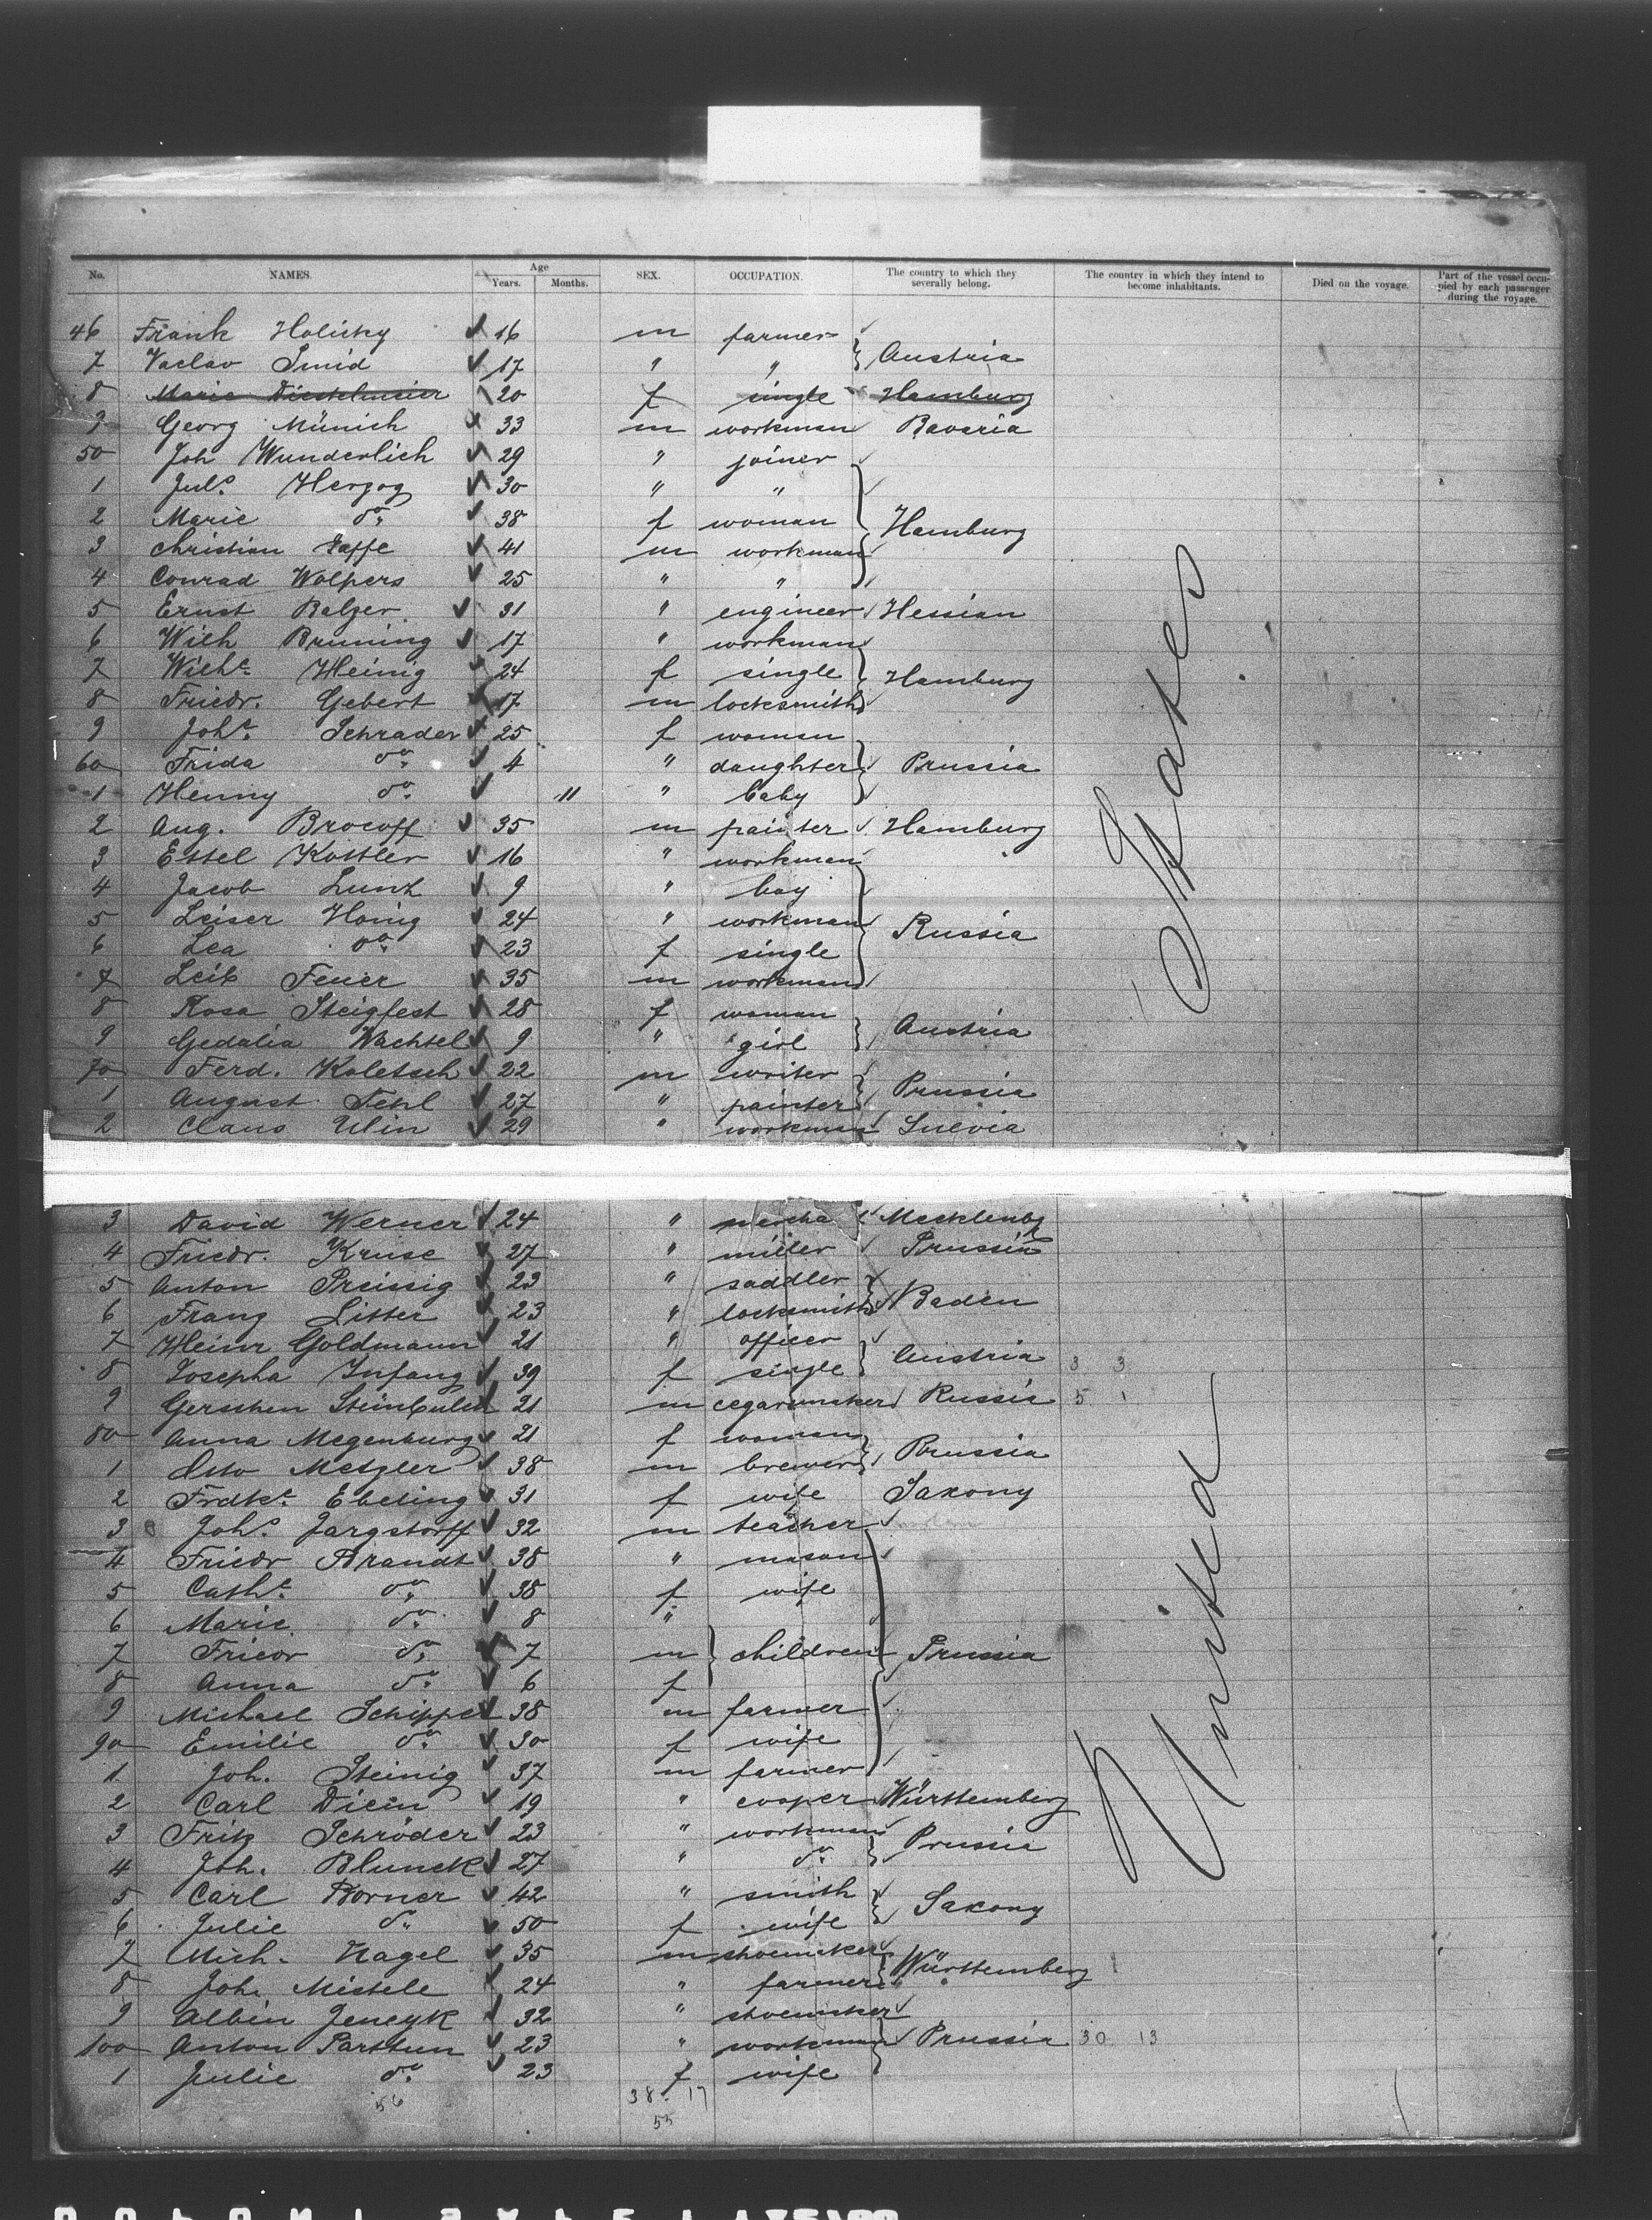 No. NAMES. Age Years. Months. SEX. OCCUPATION. The country to which they severally belong. The country in which they intend to become inhabitants. Died on the voyage. Part of the vessel occupied by each passenger during the voyage.
46 Frank Holicky 16 m farmer
7 Vaclav Smid 17 " " Austria
8 Marie 20 f single Hamburg
9 Georg Münich 33 m workman Bavaria
50 Joh Wunderlich 29 " joiner
1 Juls. Herzog 30 " "
2 Marie do. 38 f woman Hamburg
3 Christian Jaffe 41 m workman
4 Conrad Wolpers 25 " "
5 Ernst Balzer 31 " engineer Hessian
6 Wilh Bruning 17 " workman
7 Wilhe. Heinig 24 f single Hamburg
8 Friedr. Gebert 17 m locksmith
9 Johe. Schrader 25 f woman
60 Frida do. 4 " daughter Prussia
1 Henny do. 11 " baby
2 Aug. Brocoff 35 m painter Hamburg
3 Estel Kottler 16 " workman
4 Jacob 9 " boy
5 Leiser Honig 24 " workman Russia
6 Lea do. 23 f single
7 Leib Feuer 35 m workman
8 Rosa Steigfest 28 f woman
9 Gedalia Wachtel 9 " girl Austria
70 Ferd. Koletsch 22 m writer
1 August Fehl 27 " painter Prussia
2 Claus Ulin 29 " workman Suevia
3 David Werner 24 " mercha Mecklenbg
4 Friedr. Kruse 27 " miller Prussia
5 Anton Preissig 23 " saddler
6 Franz Litter 23 " locksmith Baden
7 Heinr Goldmann 21 " officer
8 Josepha Infang 39 f single Austria 3 3
9 Gerschen 21 m cegarsmaker Russia 5 1
80 Anna Megenburg 21 f woman
1 Otto Metzler 38 m brewer Prussia
2 Frdke. Ebeling 31 f wife Saxony
3 Johs. Jargstorff 32 m teacher
4 Friedr Brandt 38 " mason
5 Cathe. do. 38 f wife
6 Marie do. 8 "
7 Friedr do. 7 m children Prussia
8 Anna do. 6 f
9 Michael Schippel 38 m farmer
90 Emilie do. 30 f wife
1 Joh. Steinig 37 m farmer
2 Carl Diem 19 " cooper Württemberg
3 Fritz Schröder 23 " workman Prussia
4 Joh. Blunck 27 " do.
5 Carl Borner 42 " smith Saxony
6 Julie do. 50 f wife
7 Mich. Nagel 35 m shoemaker Württemberg
8 Joh. Mistele 24 " farmer " "
9 Albin Jencyk 32 " shoemaker
100 Anton Parttun 23 " workman Prussia 30 13
1 Julie do. 23 f wife
56 38 17
55
United States